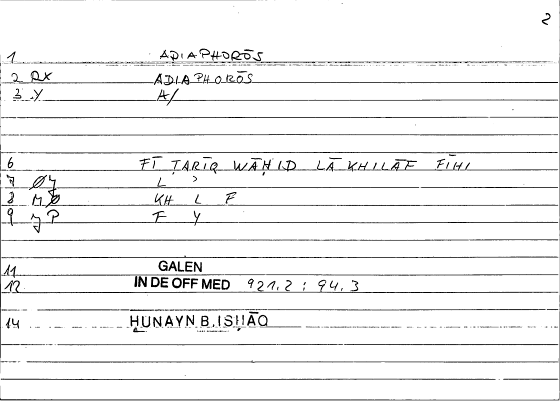 2
1 ADIAPHORŌS
2 RX ADIAPHORŌS
3 Y A/
6 FĪ ṬARĪQ WĀḤID LĀ KHILĀF FĪHI
7 L ʾ
8 KH L F
9 F Y
11 GALEN
12 IN DE OFF MED 921.2 : 94.3
14 ḤUNAYN B. ISḤĀQ